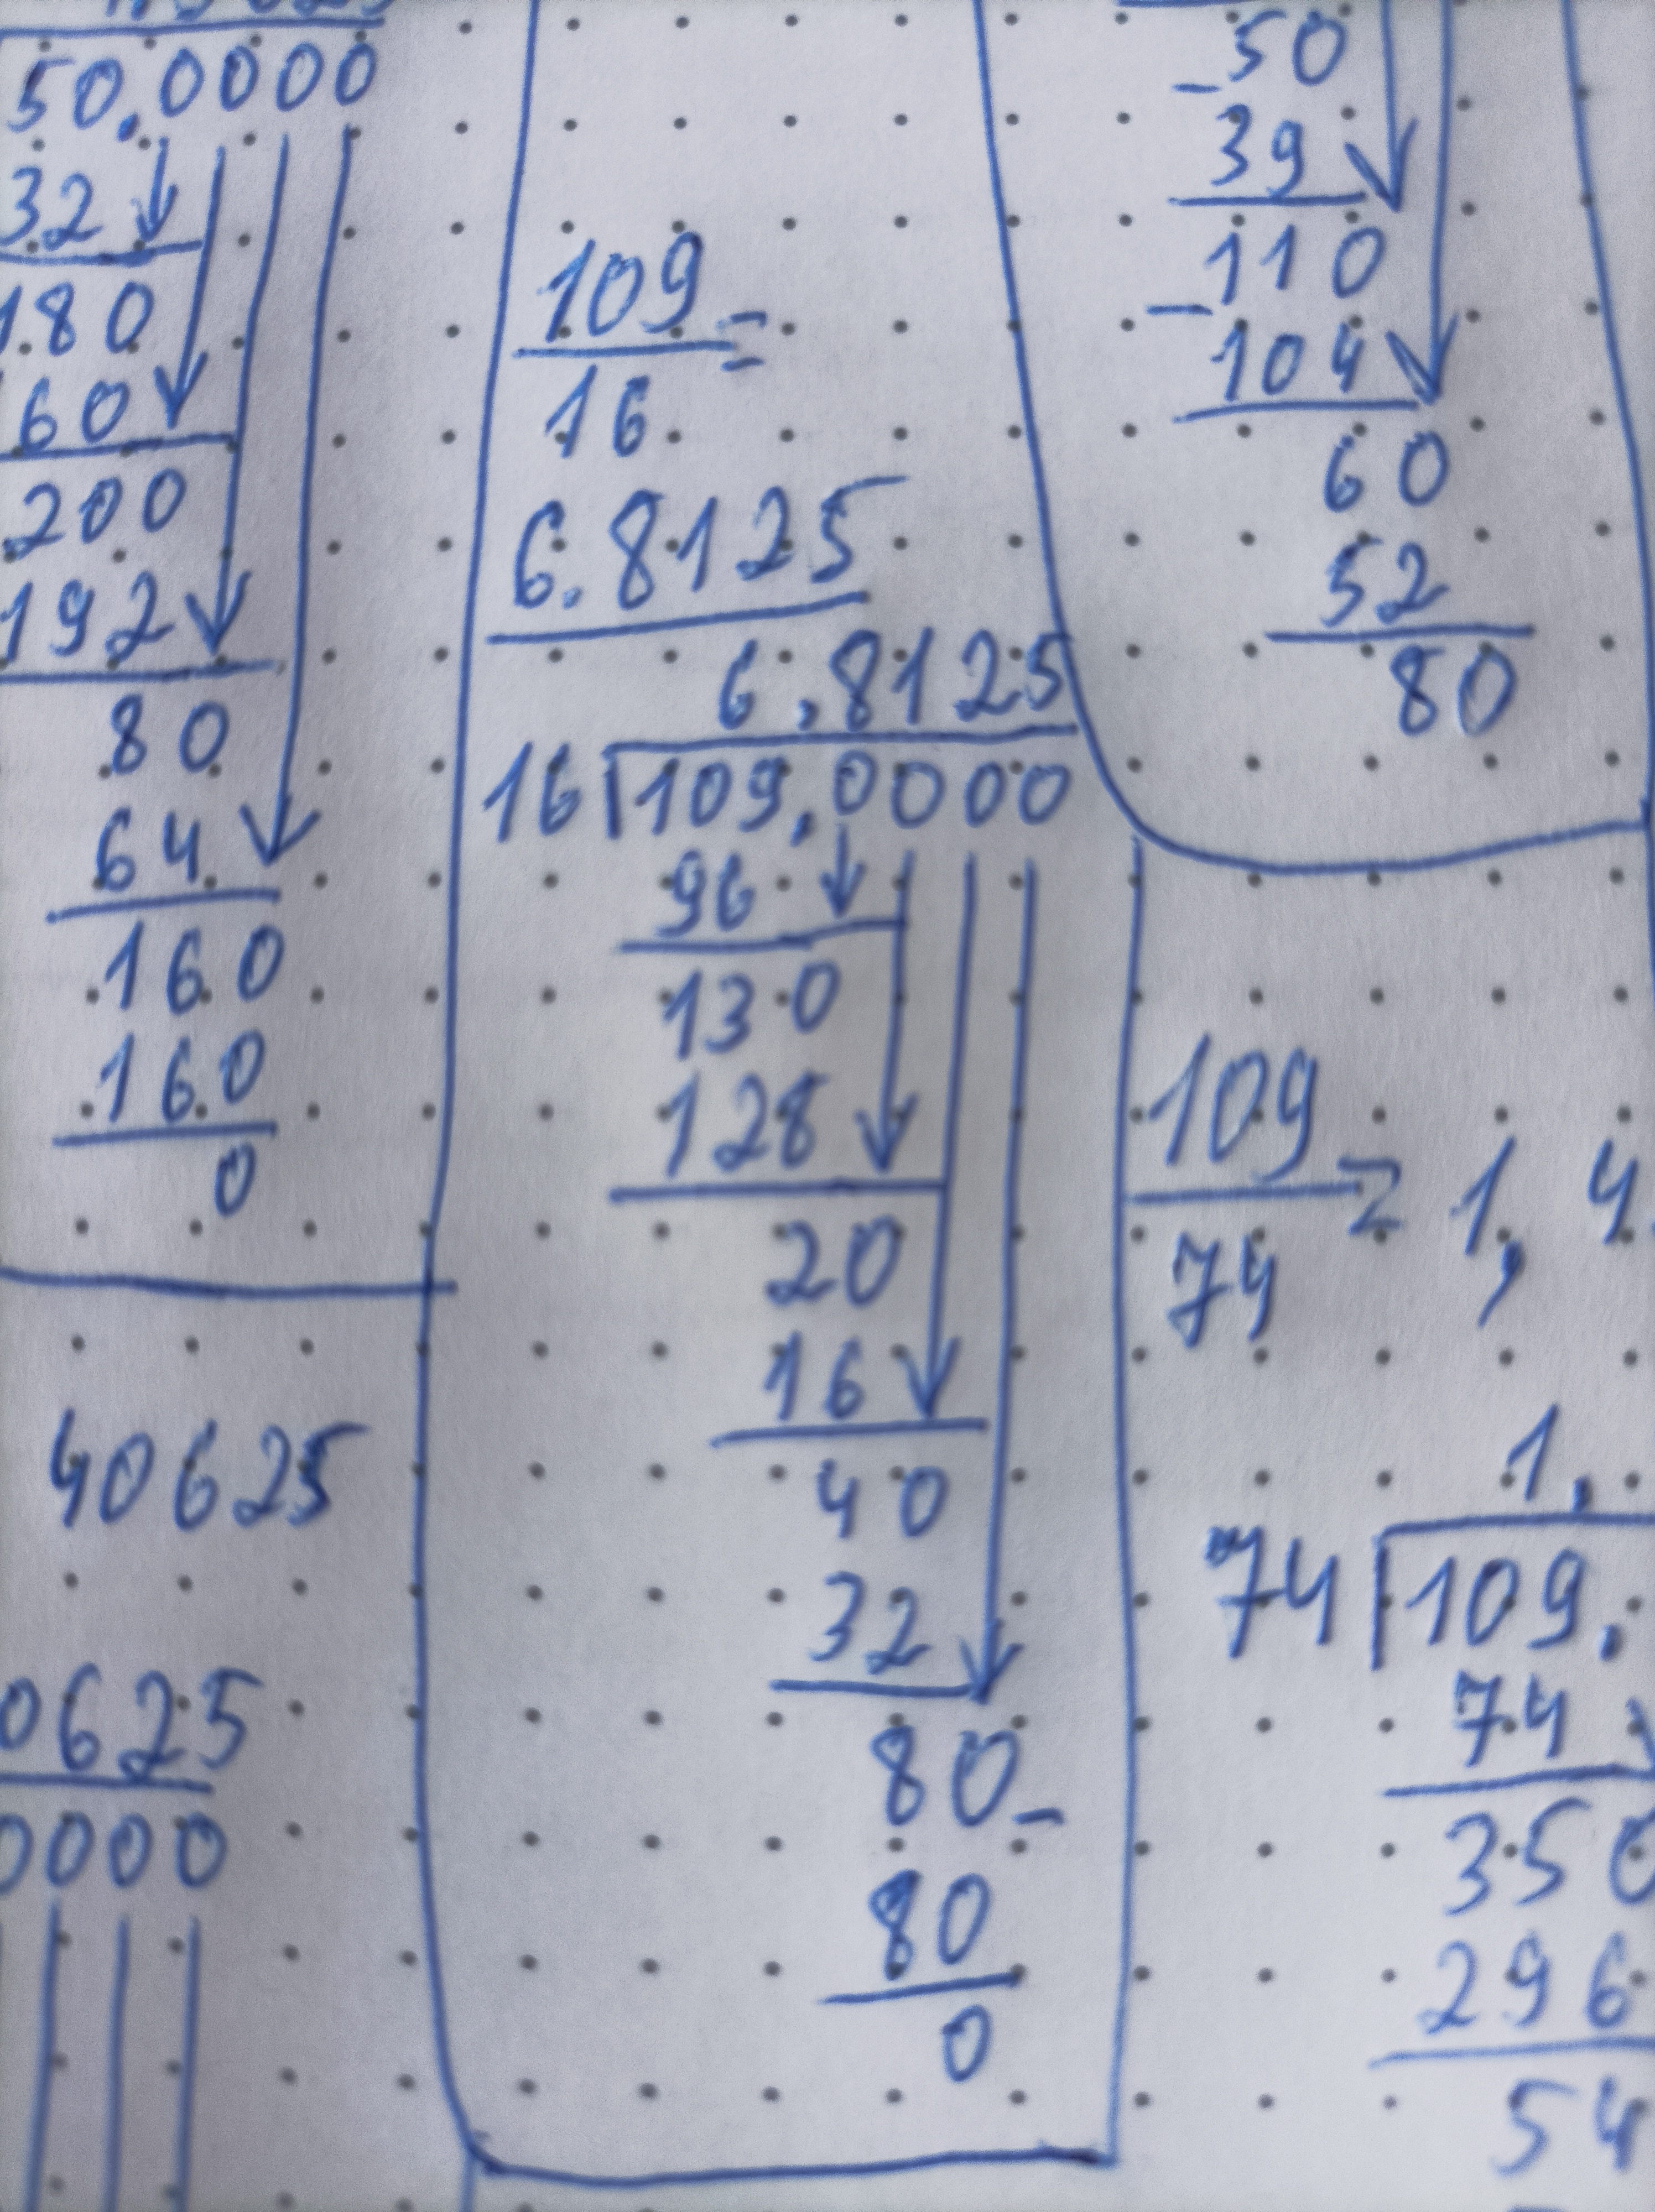 50.0000
32
180
60
200
192
80
64
160
160
0
40625
0625
0000
109 =
16
6.8125
6.8125
16 109.0000
96
130
128
20
16
40
32
80-
80
0
-50
39
110
-104
60
52
80
109 = 1,4
74
1.
74 109.
74
350
296
54